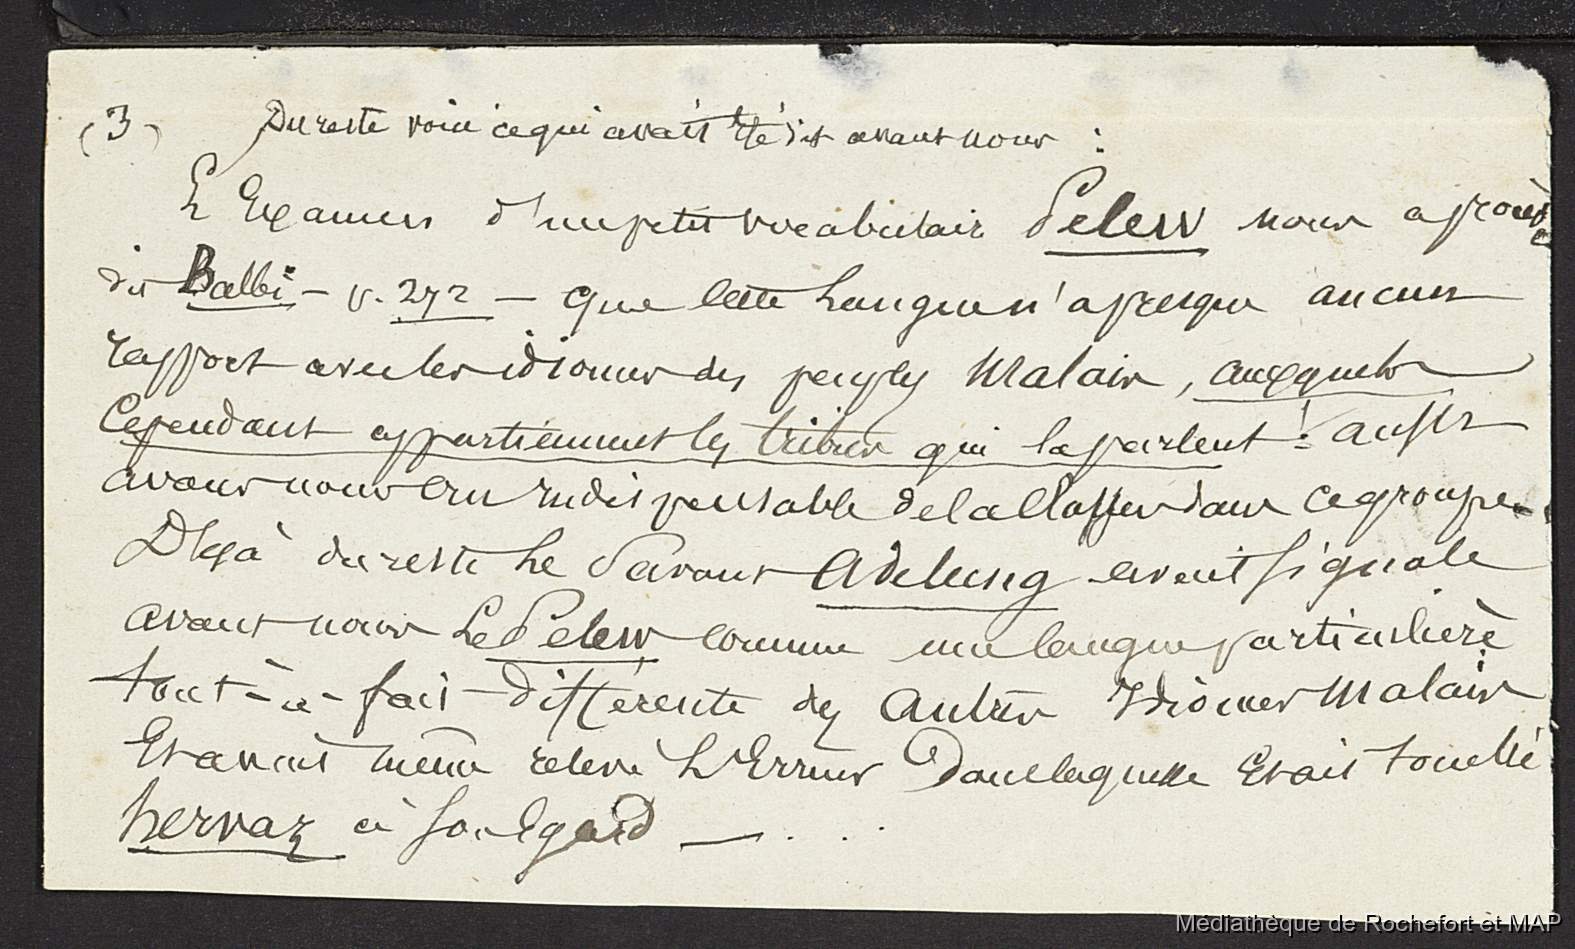 (3) Du reste voici ce qui avait été dit avant nous :
L'Examen d'un petit vocabulaire Pelew nous a prouvé
dit Balbi - p. 272 - que cette Langue n'a presque aucun
rapport avec les idiomes des peuples Malais, auxquels
Cependant appartiennent les tribus qui la parlent ! aussi
avons nous cru indispensable de la classer dans ce groupe.
Déjà du reste Le Savant Adelung avait signalé
avant nous Le Pelew comme une langue particulière
tout-à-fait différente des autres Idiomes Malais
Et avait même relevé L'Erreur Dans laquelle Etait tombé
hervaz à son Egard — . . .
Médiathèque de Rochefort et MAP